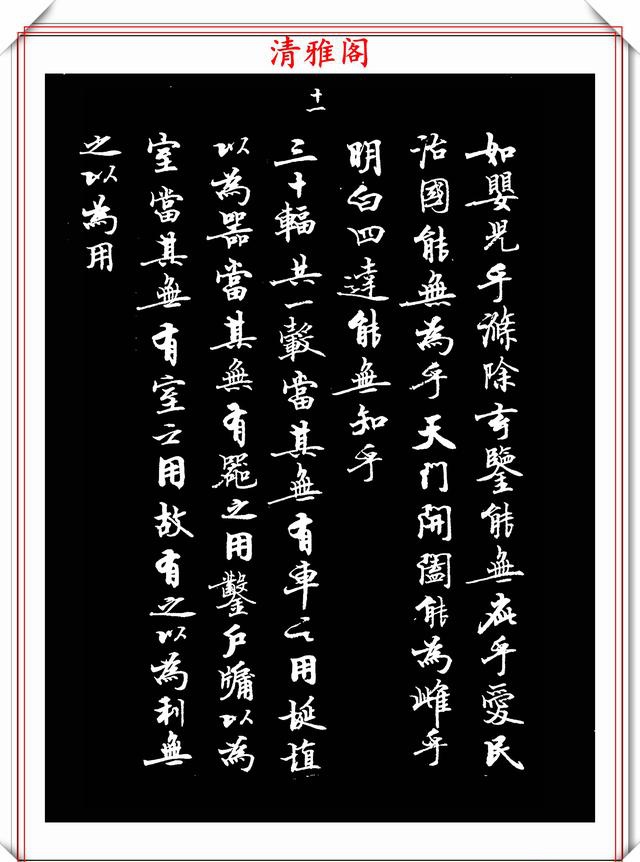 清雅阁
十一
如嬰児乎滌除玄鑒能無疵乎愛民
治國能無為乎天門開闔能為雌乎
明白四達能無知乎
三十輻共一轂當其無有車之用埏埴
以為器當其無有器之用鑿戶牖以為
室當其無有室之用故有之以為利無
之以為用